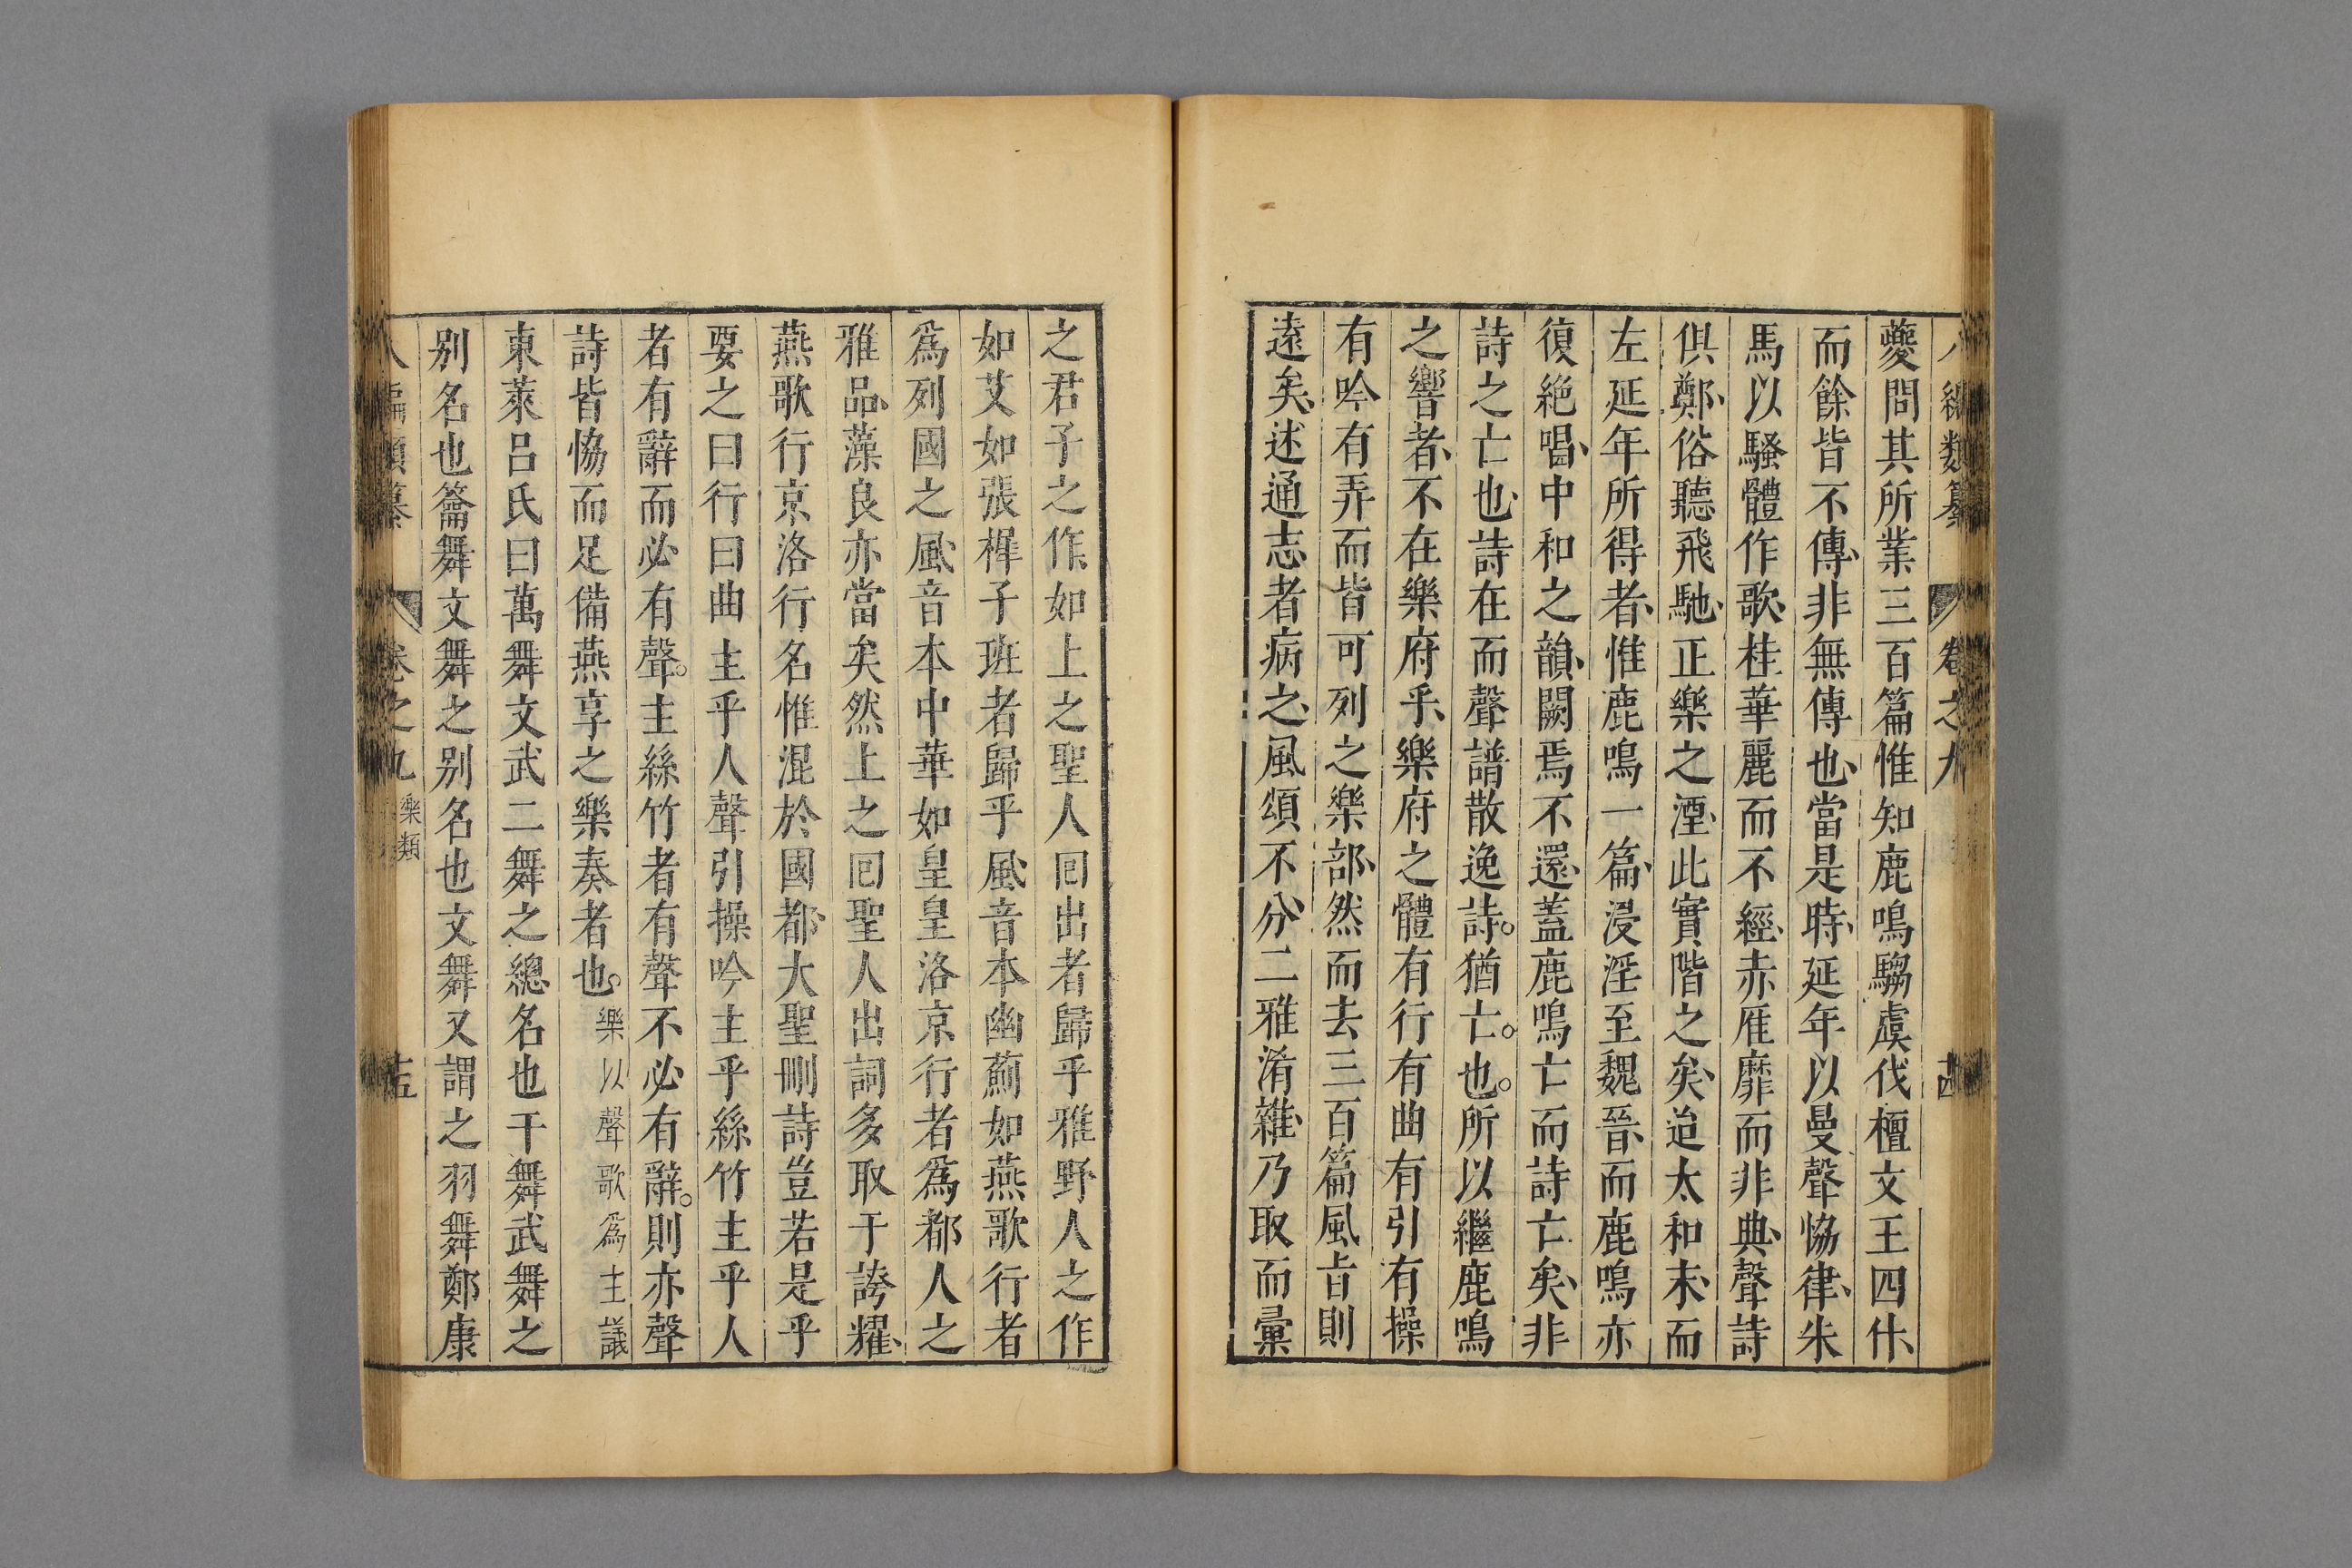 八編類纂 卷之九 十四
夔問其所業三百篇惟知鹿鳴騶虞伐檀文王四什
而餘皆不傳非無傳也當是時延年以曼聲協律朱
馬以騷體作歌桂華麗而不經赤雁靡而非典聲詩
俱鄭俗聽飛馳正樂之湮此實階之矣迨太和末而
左延年所得者惟鹿鳴一篇浸淫至魏晉而鹿鳴亦
復絶唱中和之韻闕焉不還蓋鹿鳴亡而詩亡矣非
詩之亡也詩在而聲譜散逸詩。猶亡。也。所以繼鹿鳴
之響者不在樂府乎樂府之體有行有曲有引有操
有吟有弄而皆可列之樂部然而去三百篇風旨則
遠矣述通志者病之風頌不分二雅淆雜乃取而彙
之君子之作如上之聖人囘出者歸乎雅野人之作
如艾如張椎子班者歸乎風音本幽薊如燕歌行者
爲列國之風音本中華如皇皇洛京行者爲都人之
雅品藻良亦當矣然上之囘聖人出詞多取于誇耀
燕歌行京洛行名惟混於國都大聖刪詩豈若是乎
要之曰行曰曲主乎人聲引操吟主乎絲竹主乎人
者有辭而必有聲。主絲竹者有聲不必有辭。則亦聲
詩皆恊而足備燕享之樂奏者也。樂以聲歌爲主議
東萊呂氏曰萬舞文武二舞之總名也干舞武舞之
别名也籥舞文舞之别名也文舞又謂之羽舞鄭康
八編類纂 卷之九 樂類 十五